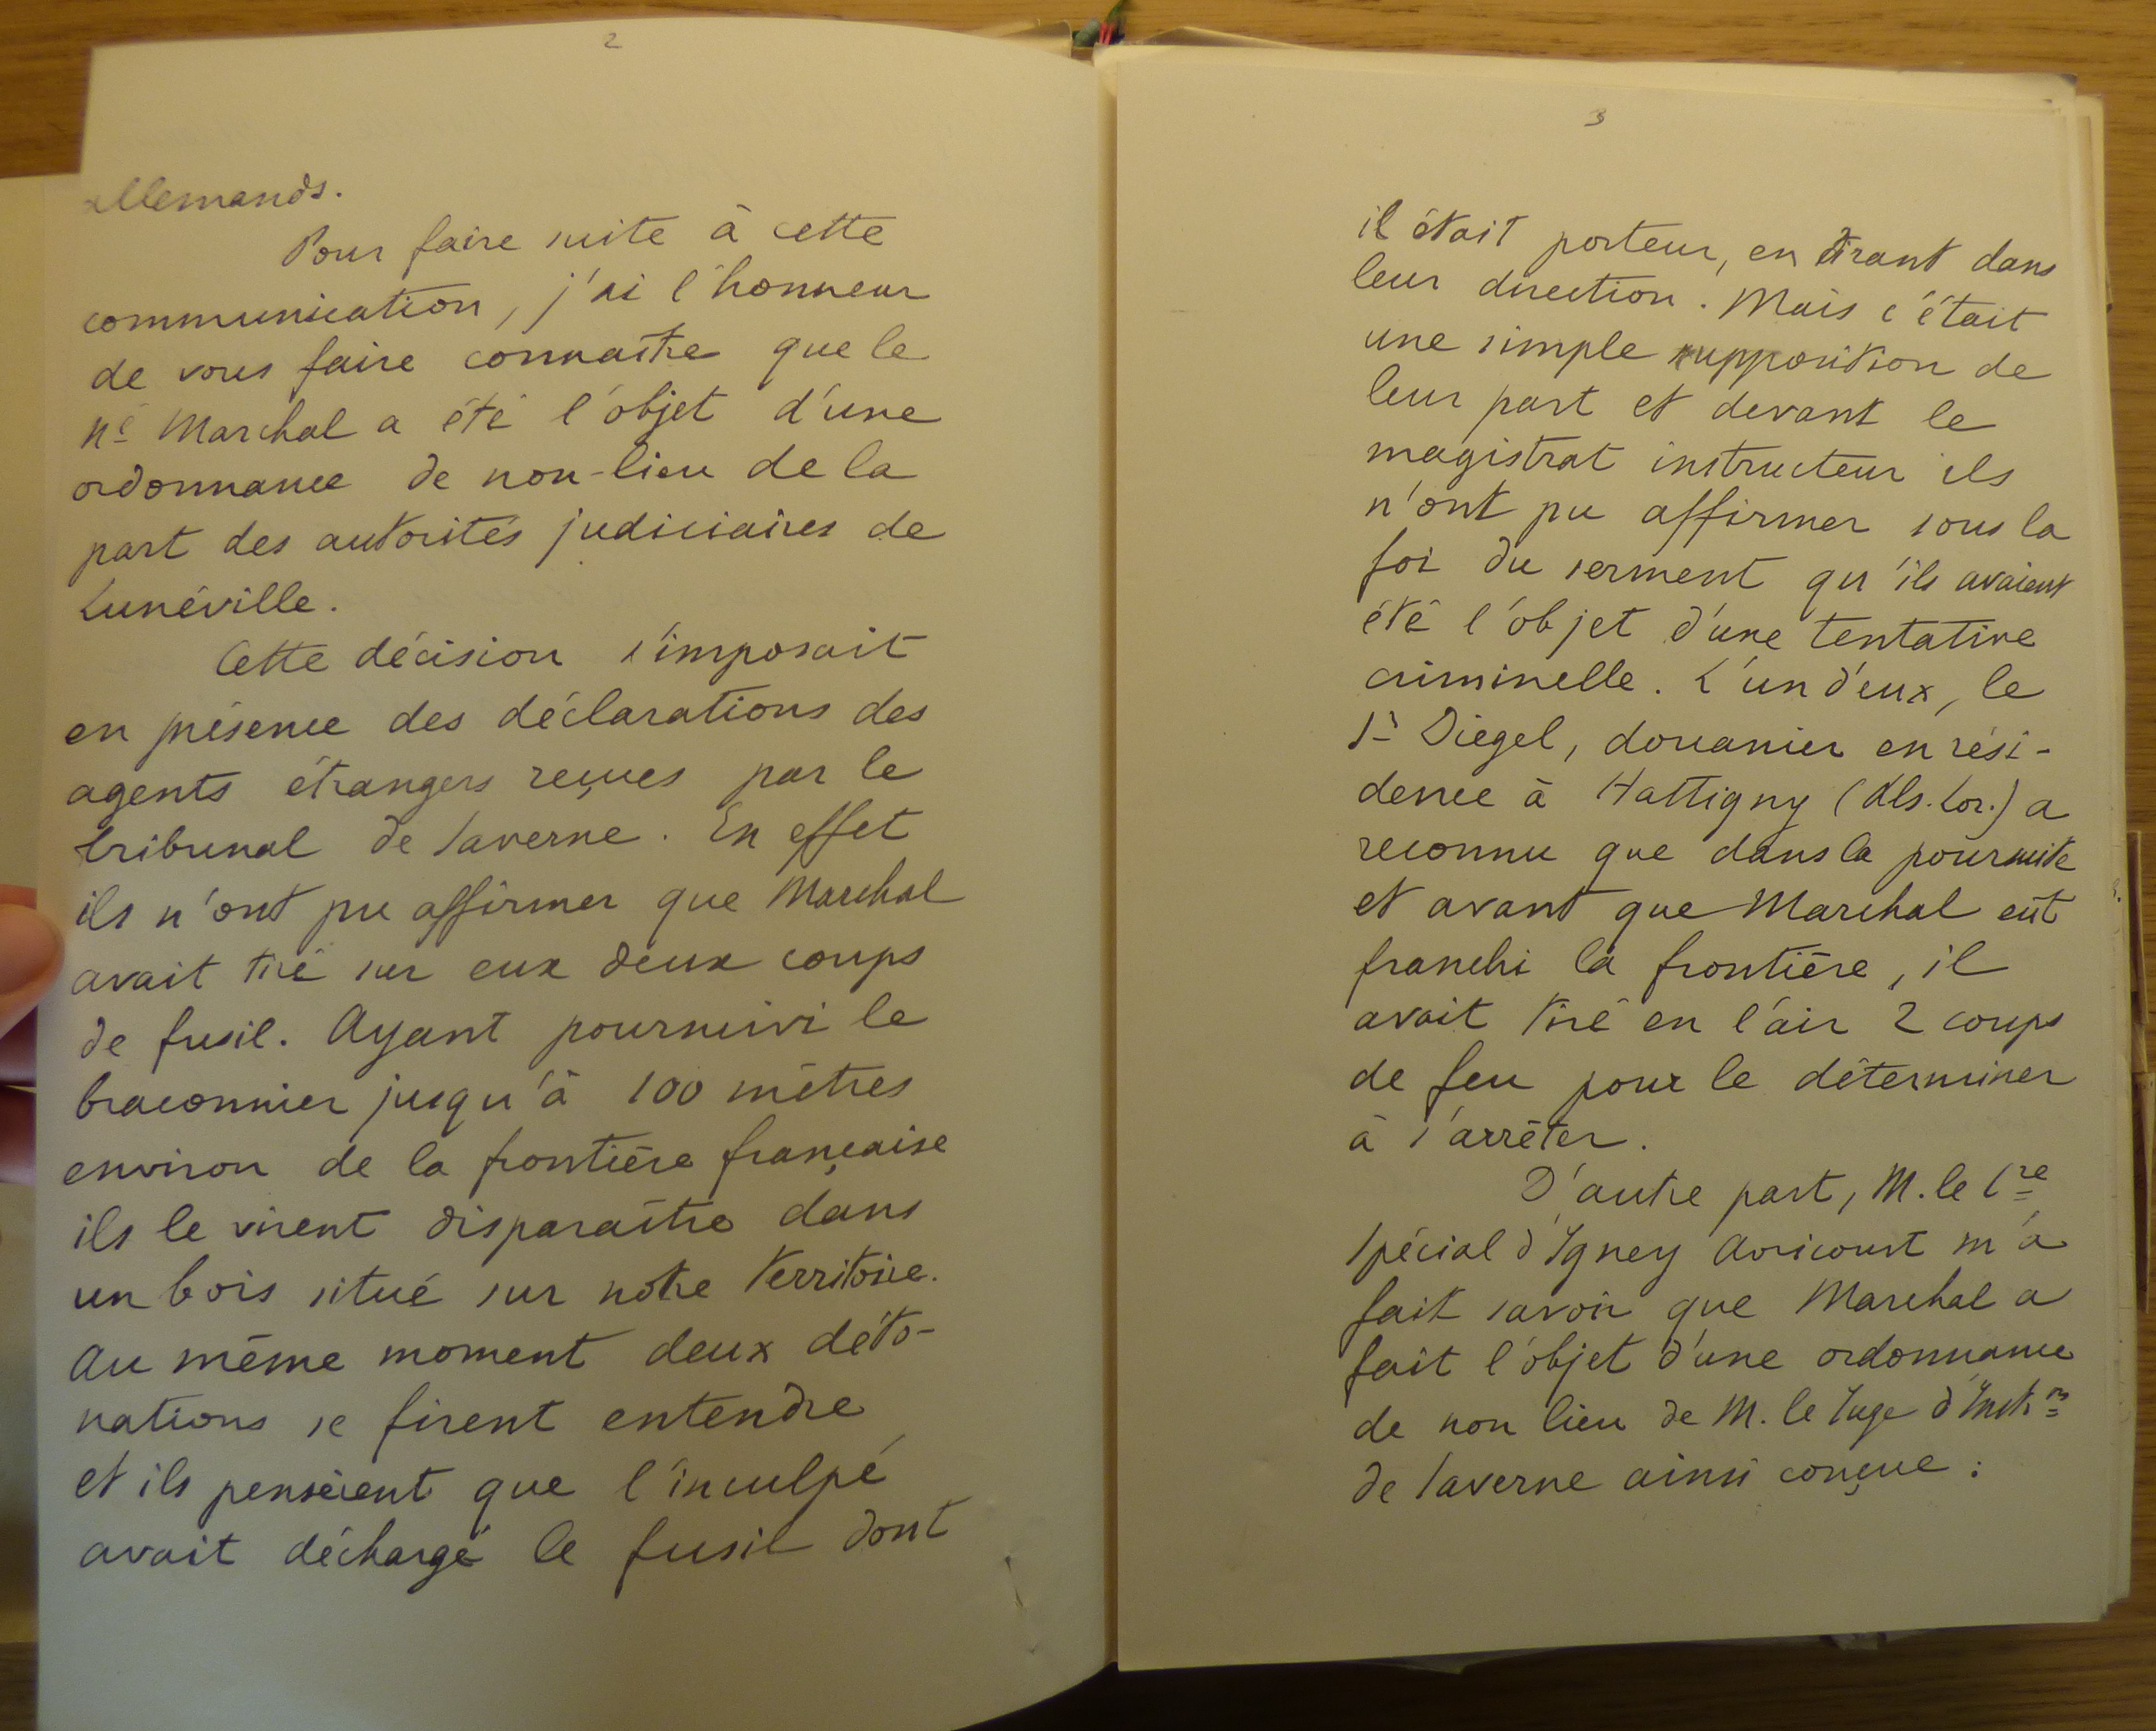 2
allemands.
Pour faire suite à cette
communication, j'ai l'honneur
de vous faire connaître que le
né Marchal a été l'objet d'une
ordonnance de non-lieu de la
part des autorités judiciaires de
Lunéville.
Cette décision s'imposait
en présence des déclarations des
agents étrangers reçues par le
tribunal de Saverne. En effet
ils n'ont pu affirmer que Marchal
avait tiré sur eux deux coups
de fusil. Ayant poursuivi le
braconnier jusqu'à 100 mètres
environ de la frontière française
ils le virent disparaître dans
un bois situé sur notre territoire.
Au même moment deux déto-
nations se firent entendre
et ils pensèrent que l'inculpé
avait déchargé le fusil dont
3
il était porteur, en tirant dans
leur direction. Mais c'était
une simple supposition de
leur part et devant le
magistrat instructeur ils
n'ont pu affirmer sous la
foi du serment qu'ils avaient
été l'objet d'une tentative
criminelle. L'un d'eux, le
Sr Diegel, douanier en rési-
dence à Hattigny (Als. Lor.) a
reconnu que dans la poursuite
et avant que Marchal eût
franchi la frontière, il
avait tiré en l'air 2 coups
de feu pour le déterminer
à s'arrêter.
D'autre part, M. le Cre
Spécial d'Igney Avricourt m'a
fait savoir que Marchal a
fait l'objet d'une ordonnance
de non lieu de M. le Juge d'Instron
de Saverne ainsi conçue :